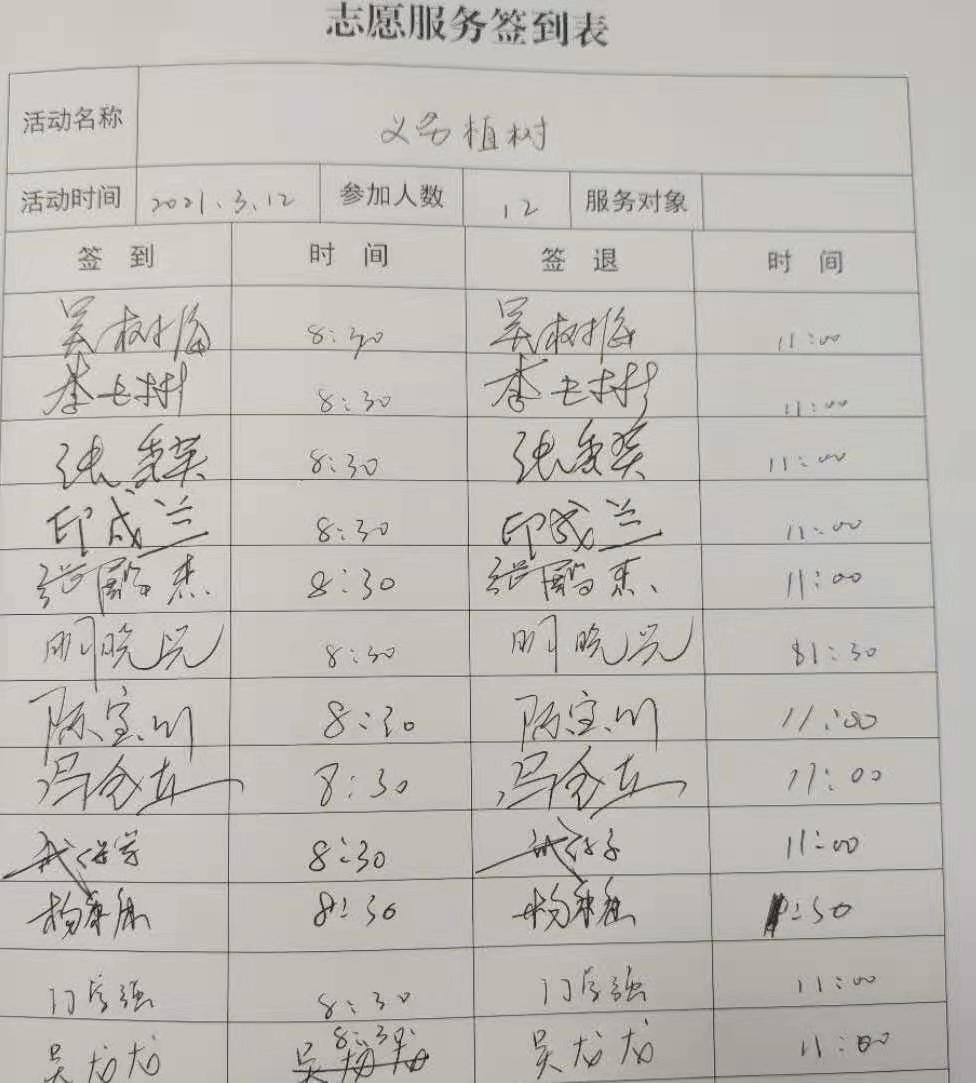 志愿服务签到表
活动名称 义务植树
活动时间 2021.3.12 参加人数 12 服务对象
签到 时间 签退 时间
吴树海 8:30 吴树海 11:00
李长彬 8:30 李长彬 11:00
张秀英 8:30 张秀英 11:00
印成兰 8:30 印成兰 11:00
8:30 11:00
明晓兵 8:30 明晓兵 11:30
陈宝川 8:30 陈宝川 11:00
冯全在 8:30 冯全在 11:00
8:30 11:00
8:30 :30
门存强 8:30 门存强 11:00
吴龙龙 8:30 吴龙龙 11:00